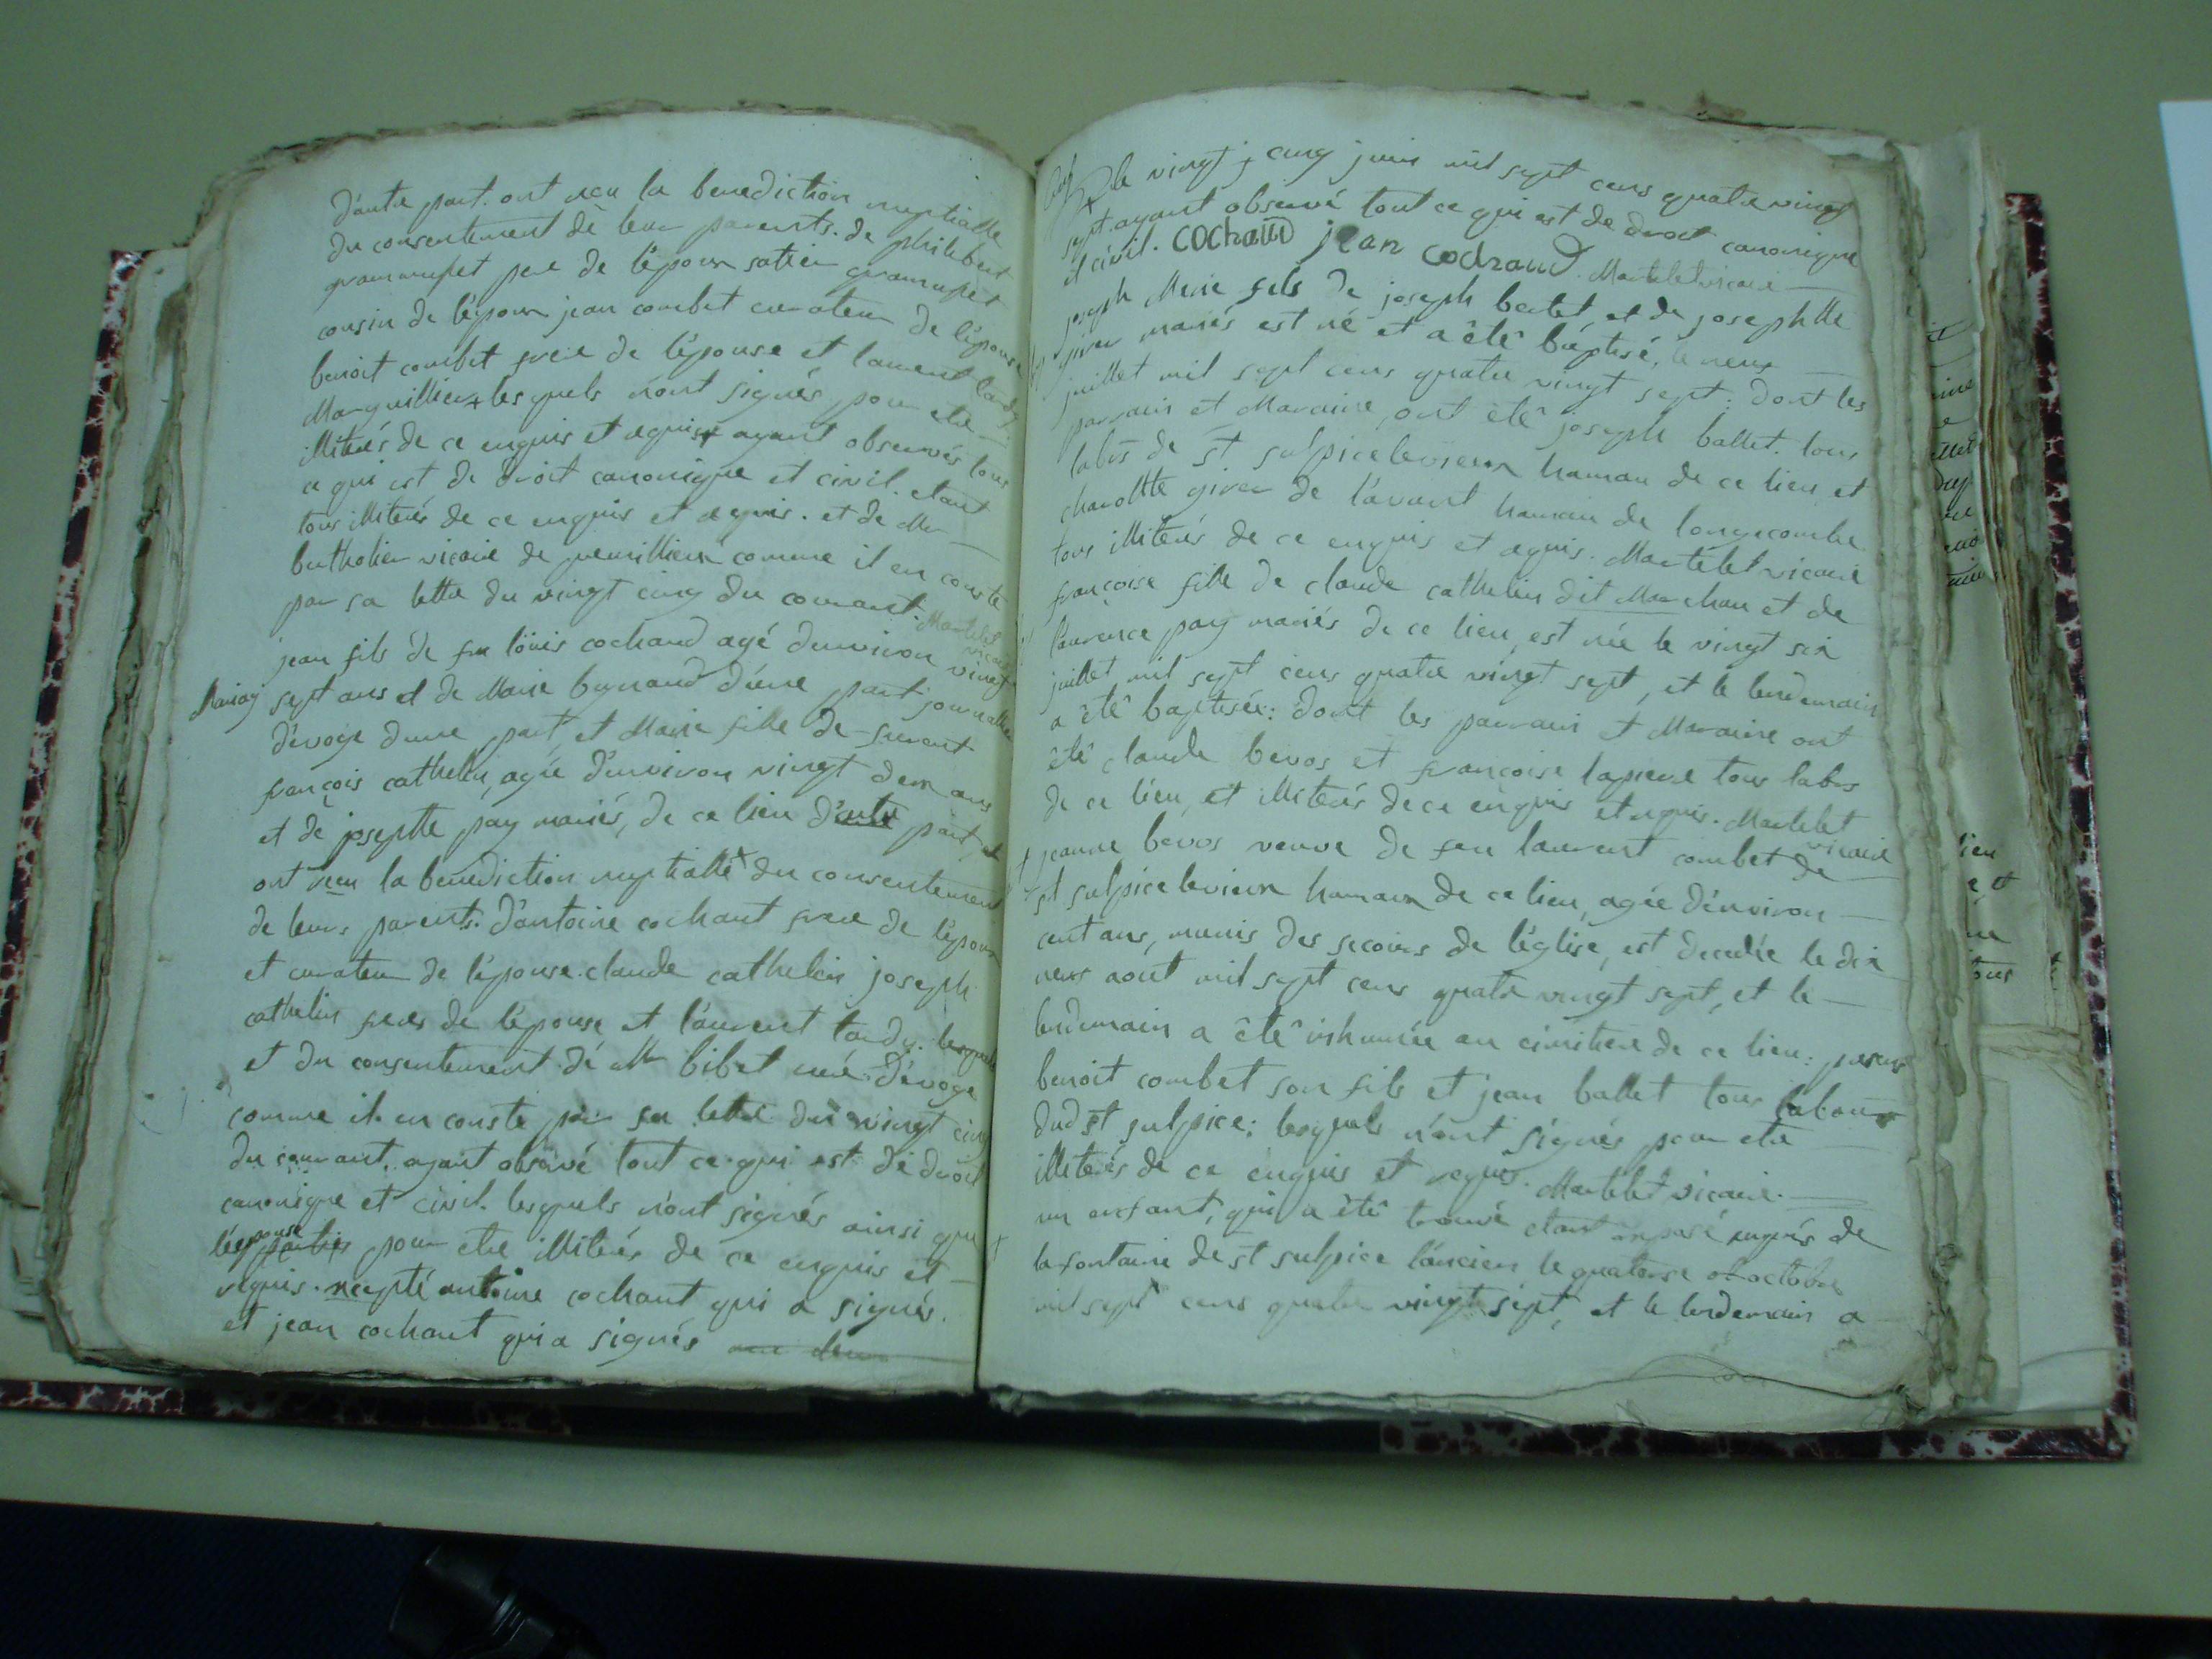 d'autre part. ont reçu la benediction nuptialle
du consentement de leur parents. de philibert
grammupet pere de l'epoux satier grammupet
cousin de l'epoux jean combet curateur de l'epouse
benoit combet frere de l'épouse et laurent tardy
Marguillier + lesquels n'ont signés pour etre
illiterés de ce enquis et requis + ayant observés tous
ce qui est de droit canonique et civil. etant
tous illiterés de ce enquis et requis. et de Mr
bertholier vicaire de premillieux comme il en conste
par sa lettre du vingt cinq du courant. Martelet
vicaire
jean fils de feu löuis cochaud agé denviron vingt
Mariag sept ans et de Marie bugnaud d'une part journallier
d'évoge dune part, et Marie fille de - furent
françois cathelin, agée d'environ vingt deux ans
et de josephtte pay mariés, de ce lieu d'autre part, et
ont recu la benediction nuptialle + du consentement
de leurs parents. d'antoine cochaut frere de l'époux
et curateur de l'épouse. claude cathelin joseph
cathelin freres de l'épouse et läurent tardy. lesquels
et du consentement de Mr bibet curé d'évoge
comme il en conste par sa lettre du vingt cinq
du courant, ayant observé tout ce qui est de droit
canonique et civil. lesquels n'ont signés ainsi que
l'épouse
les parties pour etre illiterés de ce enquis et
requis. excepté antoine cochaut qui a signés.
et jean cochaut qui a signés
le vingt j cinq juin mil sept cens quatre vingt
sept. ayant observé tout ce qui est de droit canonique
et civil. cochaud jean cochaud. Martelet vicaire
joseph Marie fils de joseph bertet et de josephtte
giver mariés est né et a êtê báptisé, le neuf
juillet mil sept cens quatre vingt sept: dont les
parrain et Maraine, ont êtê joseph ballet. tous
labrs de st sulpice levieux hamau de ce lieu et
charlotte giver de l'avant hamau de longecombe
tous illiterés de ce enquis et requis. Martelet vicaire
françoise fille de claude cathelin dit Marchau et de
laurence pay mariés de ce lieu, est née le vingt six
juillet mil sept cens quatre vingt sept, et le lendemain
a êtê baptisée: dont les parrain et Maraine ont
êtê claude bevos et françoise lapierre tous labrs
de ce lieu, et illiterés de ce enquis et requis. Martelet
vicaire
+ jeanne bevos veuve de feu laurent combet de
st sulpice levieux hamaux de ce lieu, agée d'environ
cent ans, munis des secours de l'église, est decedée le dix
neuf aout mil sept cens quatre vingt sept, et le
lendemain a êtê inhumée au cimitiere de ce lieu: presens
benoit combet son fils et jean ballet tous labours
dud st sulpice: lesquels n'ont signés pour etre
illiterés de ce enquis et requis. Martelet vicaire.
un enfant, qui a êtê trouvé etant exposé auprés de
la fontaine de st sulpice l'ancien le quatorse octobre
mil sept cens quatre vingt sept, et le lendemain a